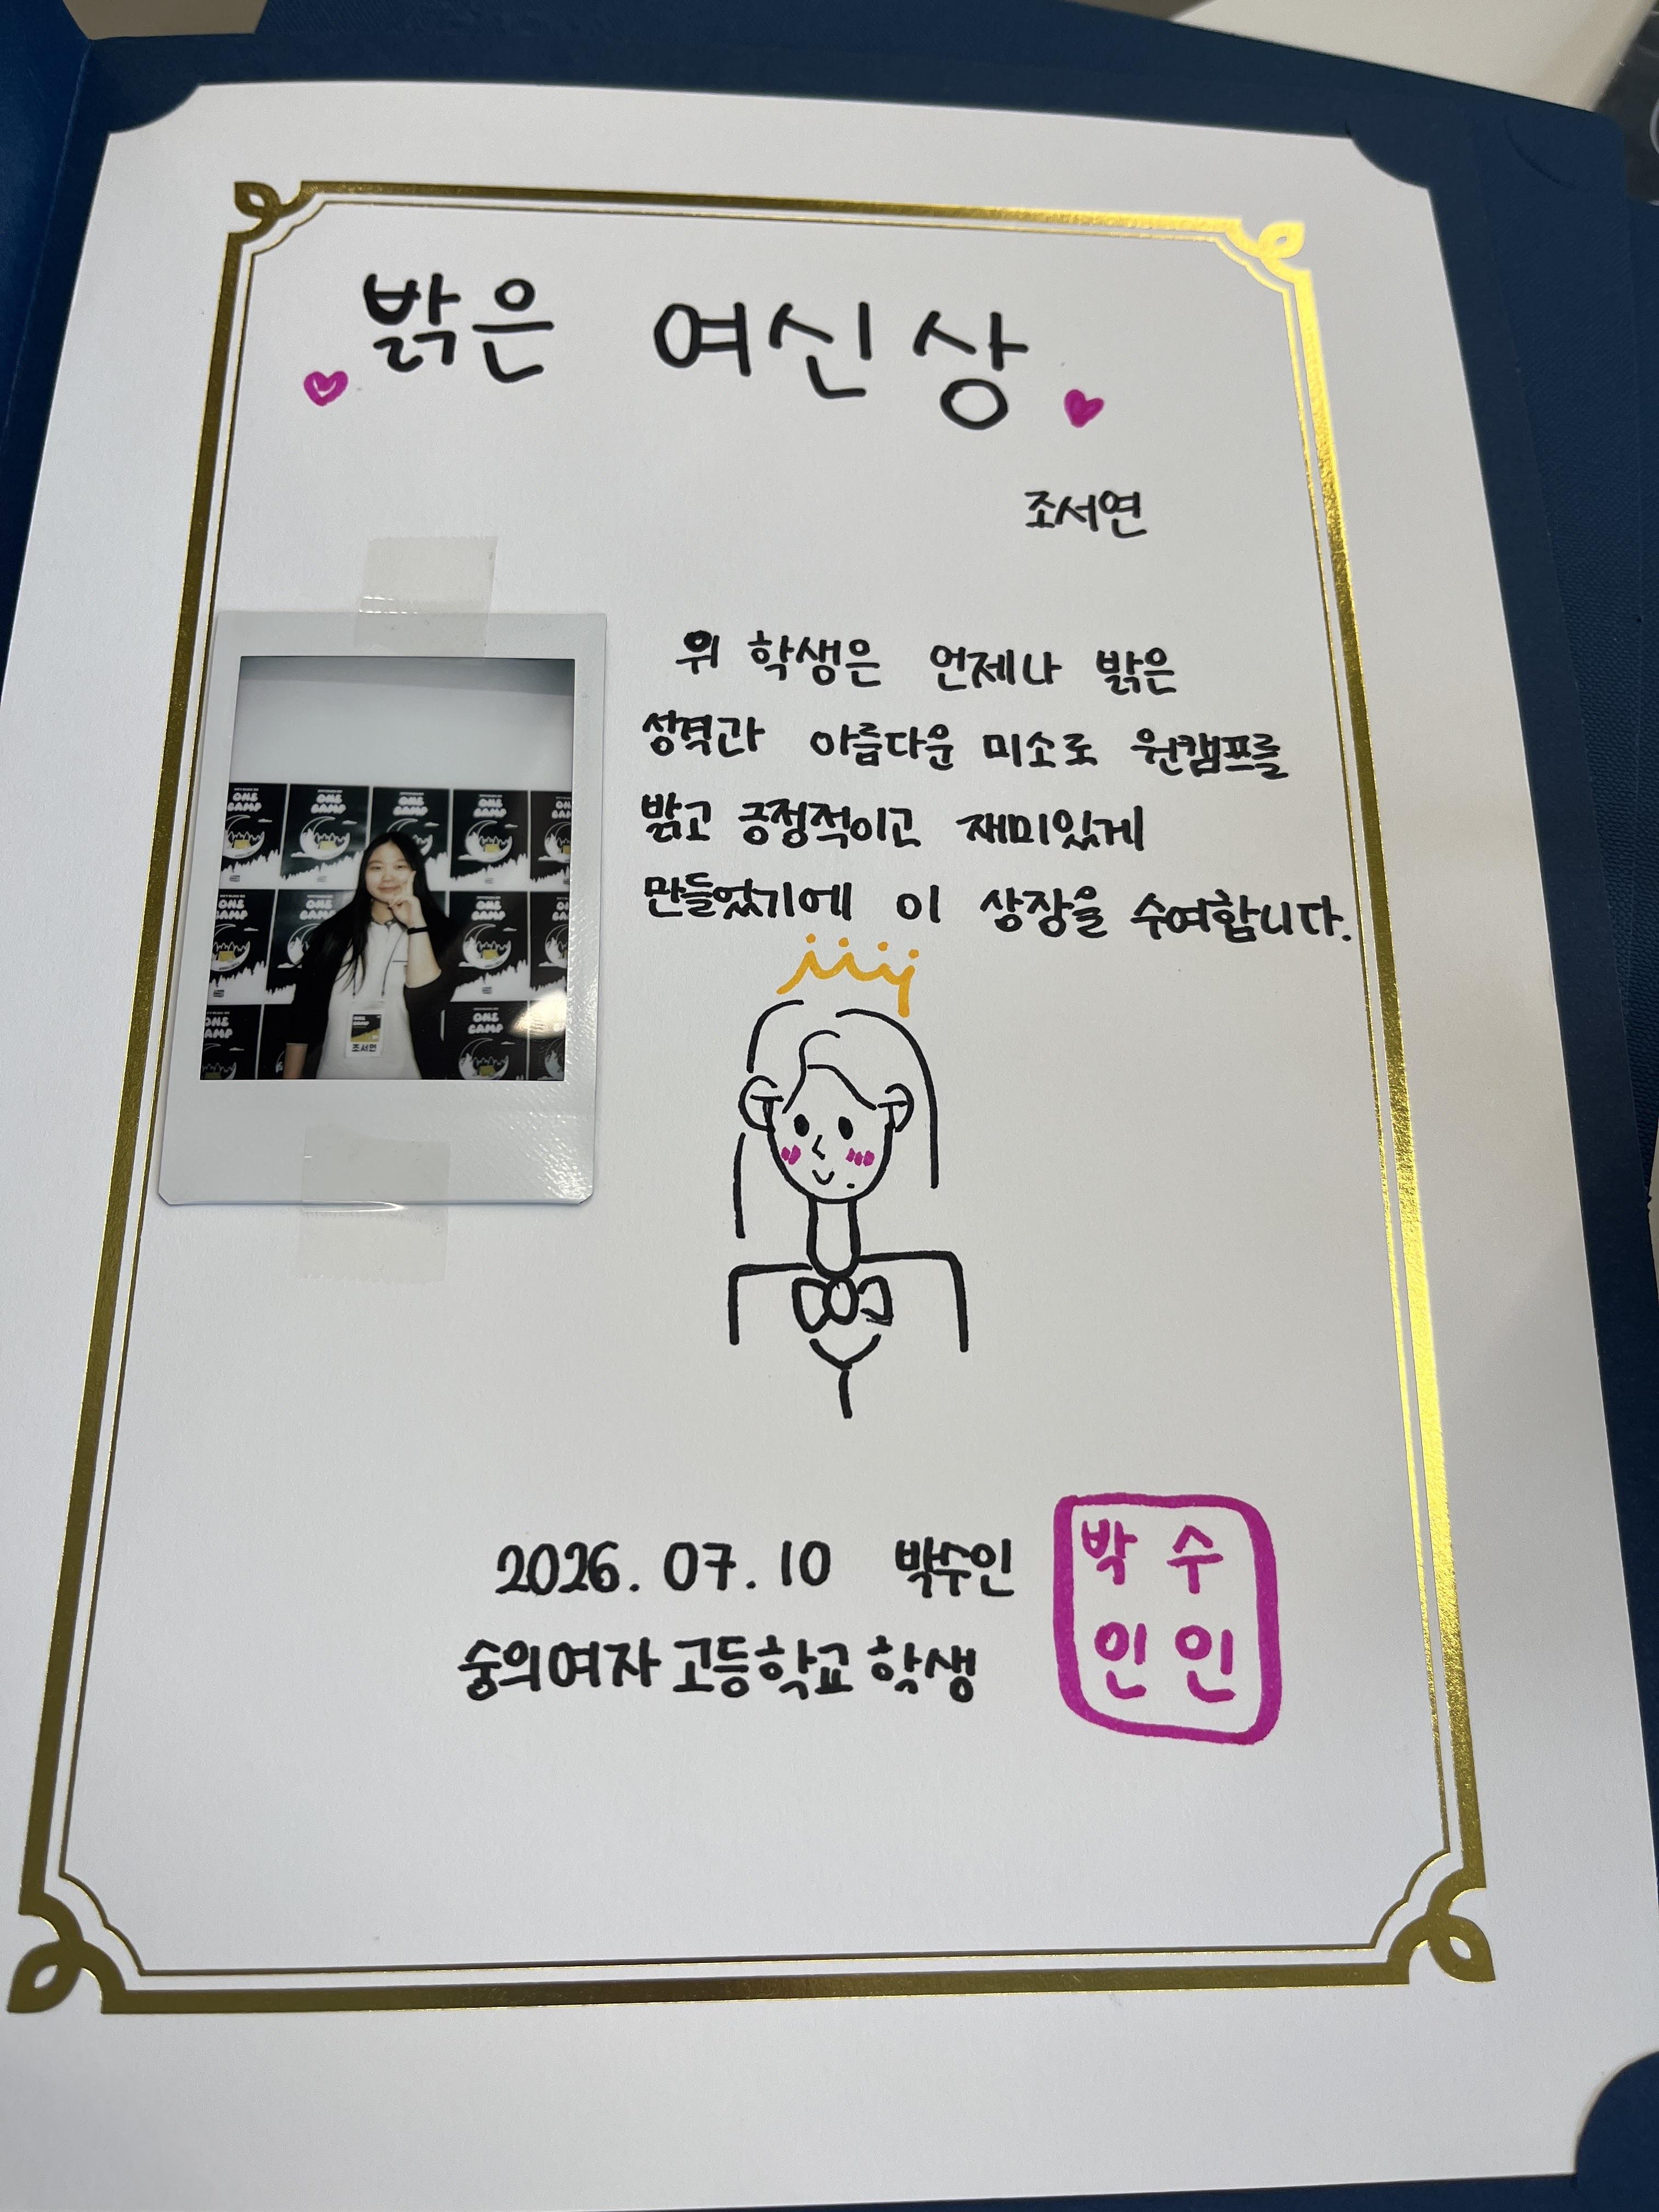 밝은 여신상
조서연
위 학생은 언제나 밝은
성격과 아름다운 미소로 원캠프를
밝고 긍정적이고 재미있게
만들었기에 이 상장을 수여합니다.
ONE CAMP
조서연
2026. 07. 10 박수인
숭의여자고등학교 학생
박수
인인